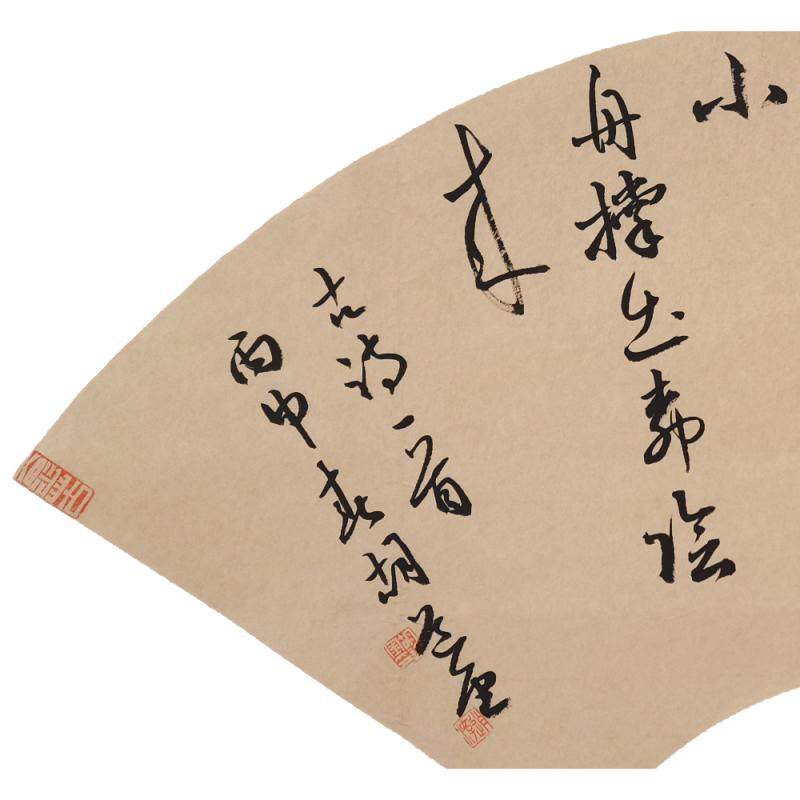 小
舟撑出柳陰
来
古诗一首
丙申春胡